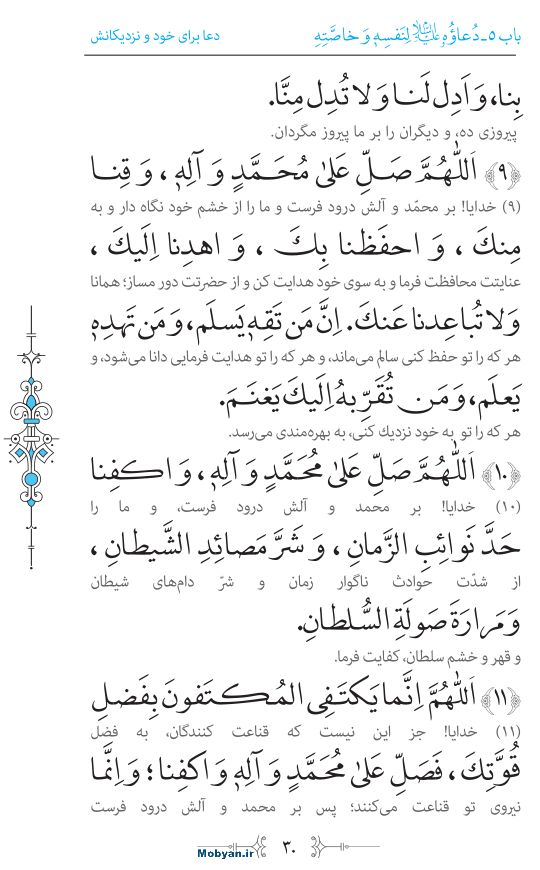 باب ۵ـ دُعاؤُهُ علیه‌السلام لِنَفسِهِ وَ خاصَّتِهِ
دعا برای خود و نزدیکانش
بِنا، وَ اَدِل لَنا وَ لا تُدِل مِنَّا.
پیروزی ده، و دیگران را بر ما پیروز مگردان.
﴿۹﴾ اَللّٰهُمَّ صَلِّ عَلىٰ مُحَمَّدٍ وَ آلِهِ ، وَ قِنا
(۹) خدایا! بر محمّد و آلش درود فرست و ما را از خشم خود نگاه دار و به
مِنكَ ، وَ احفَظنا بِكَ ، وَ اهدِنا اِلَيكَ ،
عنایتت محافظت فرما و به سوی خود هدایت کن و از حضرتت دور مساز؛ همانا
وَ لا تُباعِدنا عَنكَ. اِنَّ مَن تَقِهِ يَسلَم، وَ مَن تَهدِهِ
هر که را تو حفظ کنی سالم می‌ماند، و هر که را تو هدایت فرمایی دانا می‌شود، و
يَعلَم، وَ مَن تُقَرِّبهُ اِلَيكَ يَغنَم.
هر که را تو به خود نزدیك کنی، به بهره‌مندی می‌رسد.
﴿۱۰﴾ اَللّٰهُمَّ صَلِّ عَلىٰ مُحَمَّدٍ وَ آلِهِ ، وَ اكفِنا
(۱۰) خدایا! بر محمد و آلش درود فرست، و ما را
حَدَّ نَوائِبِ الزَّمانِ ، وَ شَرَّ مَصائِدِ الشَّيطانِ ،
از شدّت حوادث ناگوار زمان و شرّ دام‌های شیطان
وَ مَرارَةَ صَولَةِ السُّلطانِ.
و قهر و خشم سلطان، کفایت فرما.
﴿۱۱﴾ اَللّٰهُمَّ اِنَّما يَكتَفِى المُكتَفونَ بِفَضلِ
(۱۱) خدایا! جز این نیست که قناعت کنندگان، به فضل
قُوَّتِكَ ، فَصَلِّ عَلىٰ مُحَمَّدٍ وَ آلِهِ وَ اكفِنا ؛ وَ اِنَّما
نیروی تو قناعت می‌کنند؛ پس بر محمد و آلش درود فرست
۳۰
Mobyan.ir